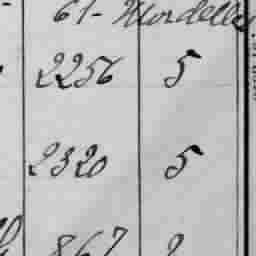 61-
2256 5
2320 5
867 2